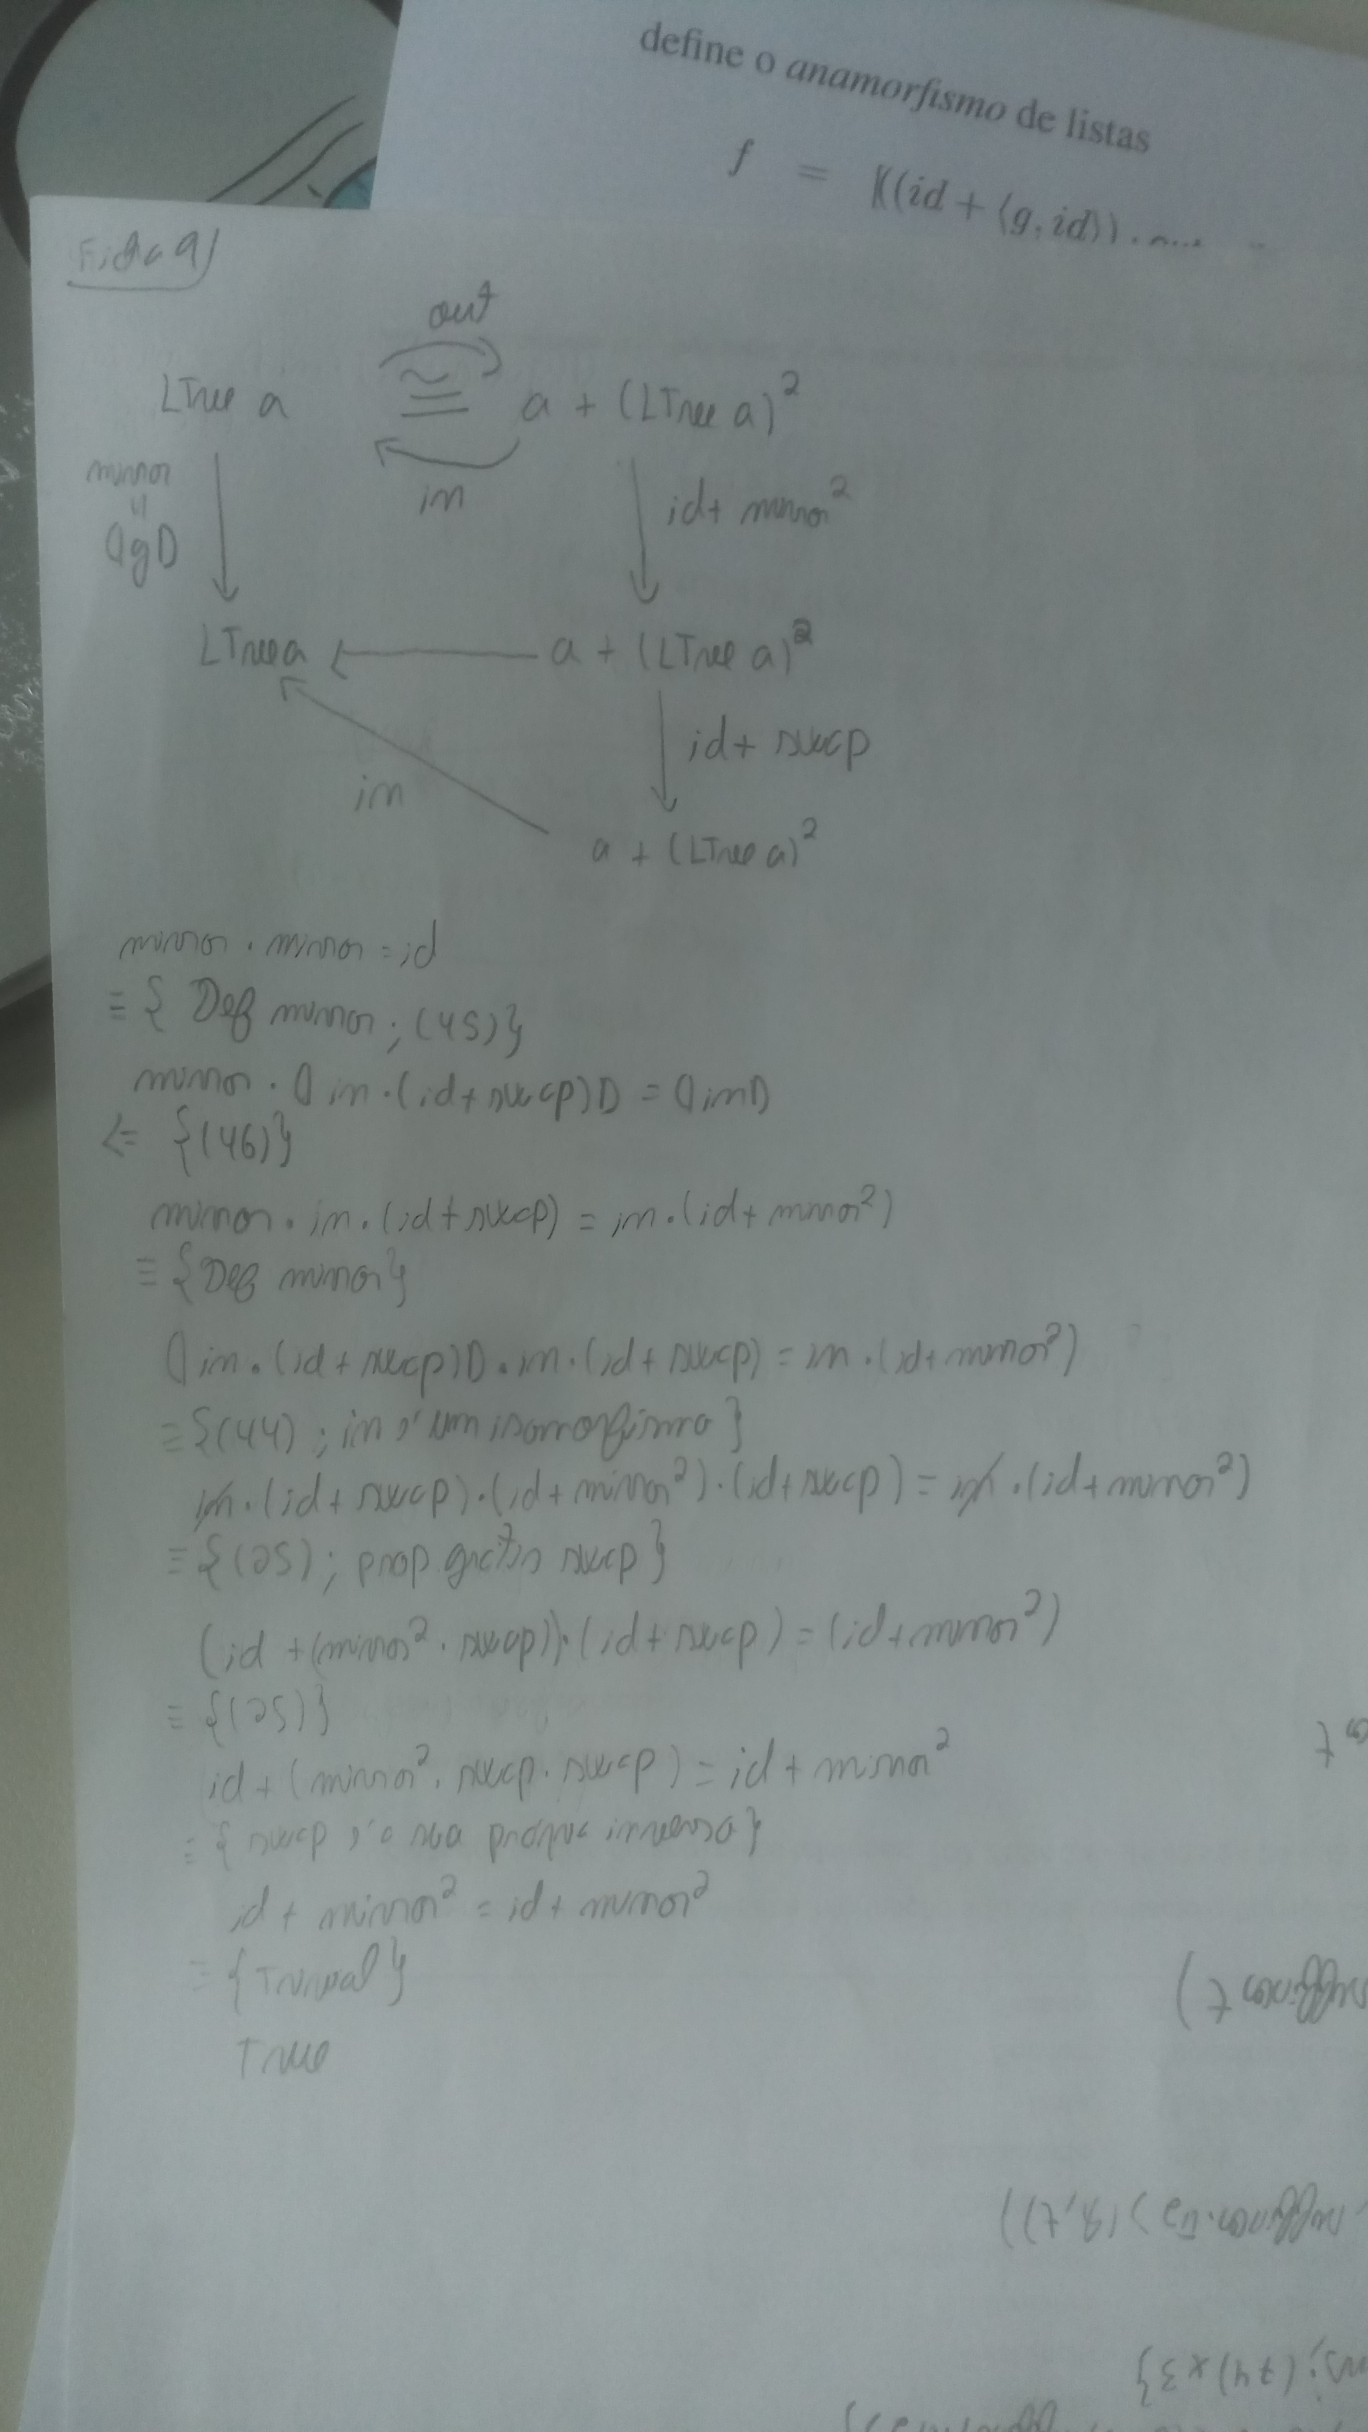 define o anamorfismo de listas
f = [((id + ⟨g, id⟩) .
Ficha 9)
out
LTree a ≅ a + (LTree a)²
in
mirror
=
(|g|)
id + mirror²
LTree a a + (LTree a)²
id + swap
in
a + (LTree a)²
mirror . mirror = id
≡ { Def mirror ; (45) }
mirror . (| in . (id + swap) |) = (| in |)
<= { (46) }
mirror . in . (id + swap) = in . (id + mirror²)
≡ { Def mirror }
(| in . (id + swap) |) . in . (id + swap) = in . (id + mirror²)
≡ { (44) ; in é um isomorfismo }
in . (id + swap) . (id + mirror²) . (id + swap) = in . (id + mirror²)
≡ { (25) ; prop. grátis swap }
(id + (mirror² . swap)) . (id + swap) = (id + mirror²)
≡ { (25) }
id + (mirror² . swap . swap) = id + mirror²
≡ { swap é a sua própria inversa }
id + mirror² = id + mirror²
≡ { Trivial }
True